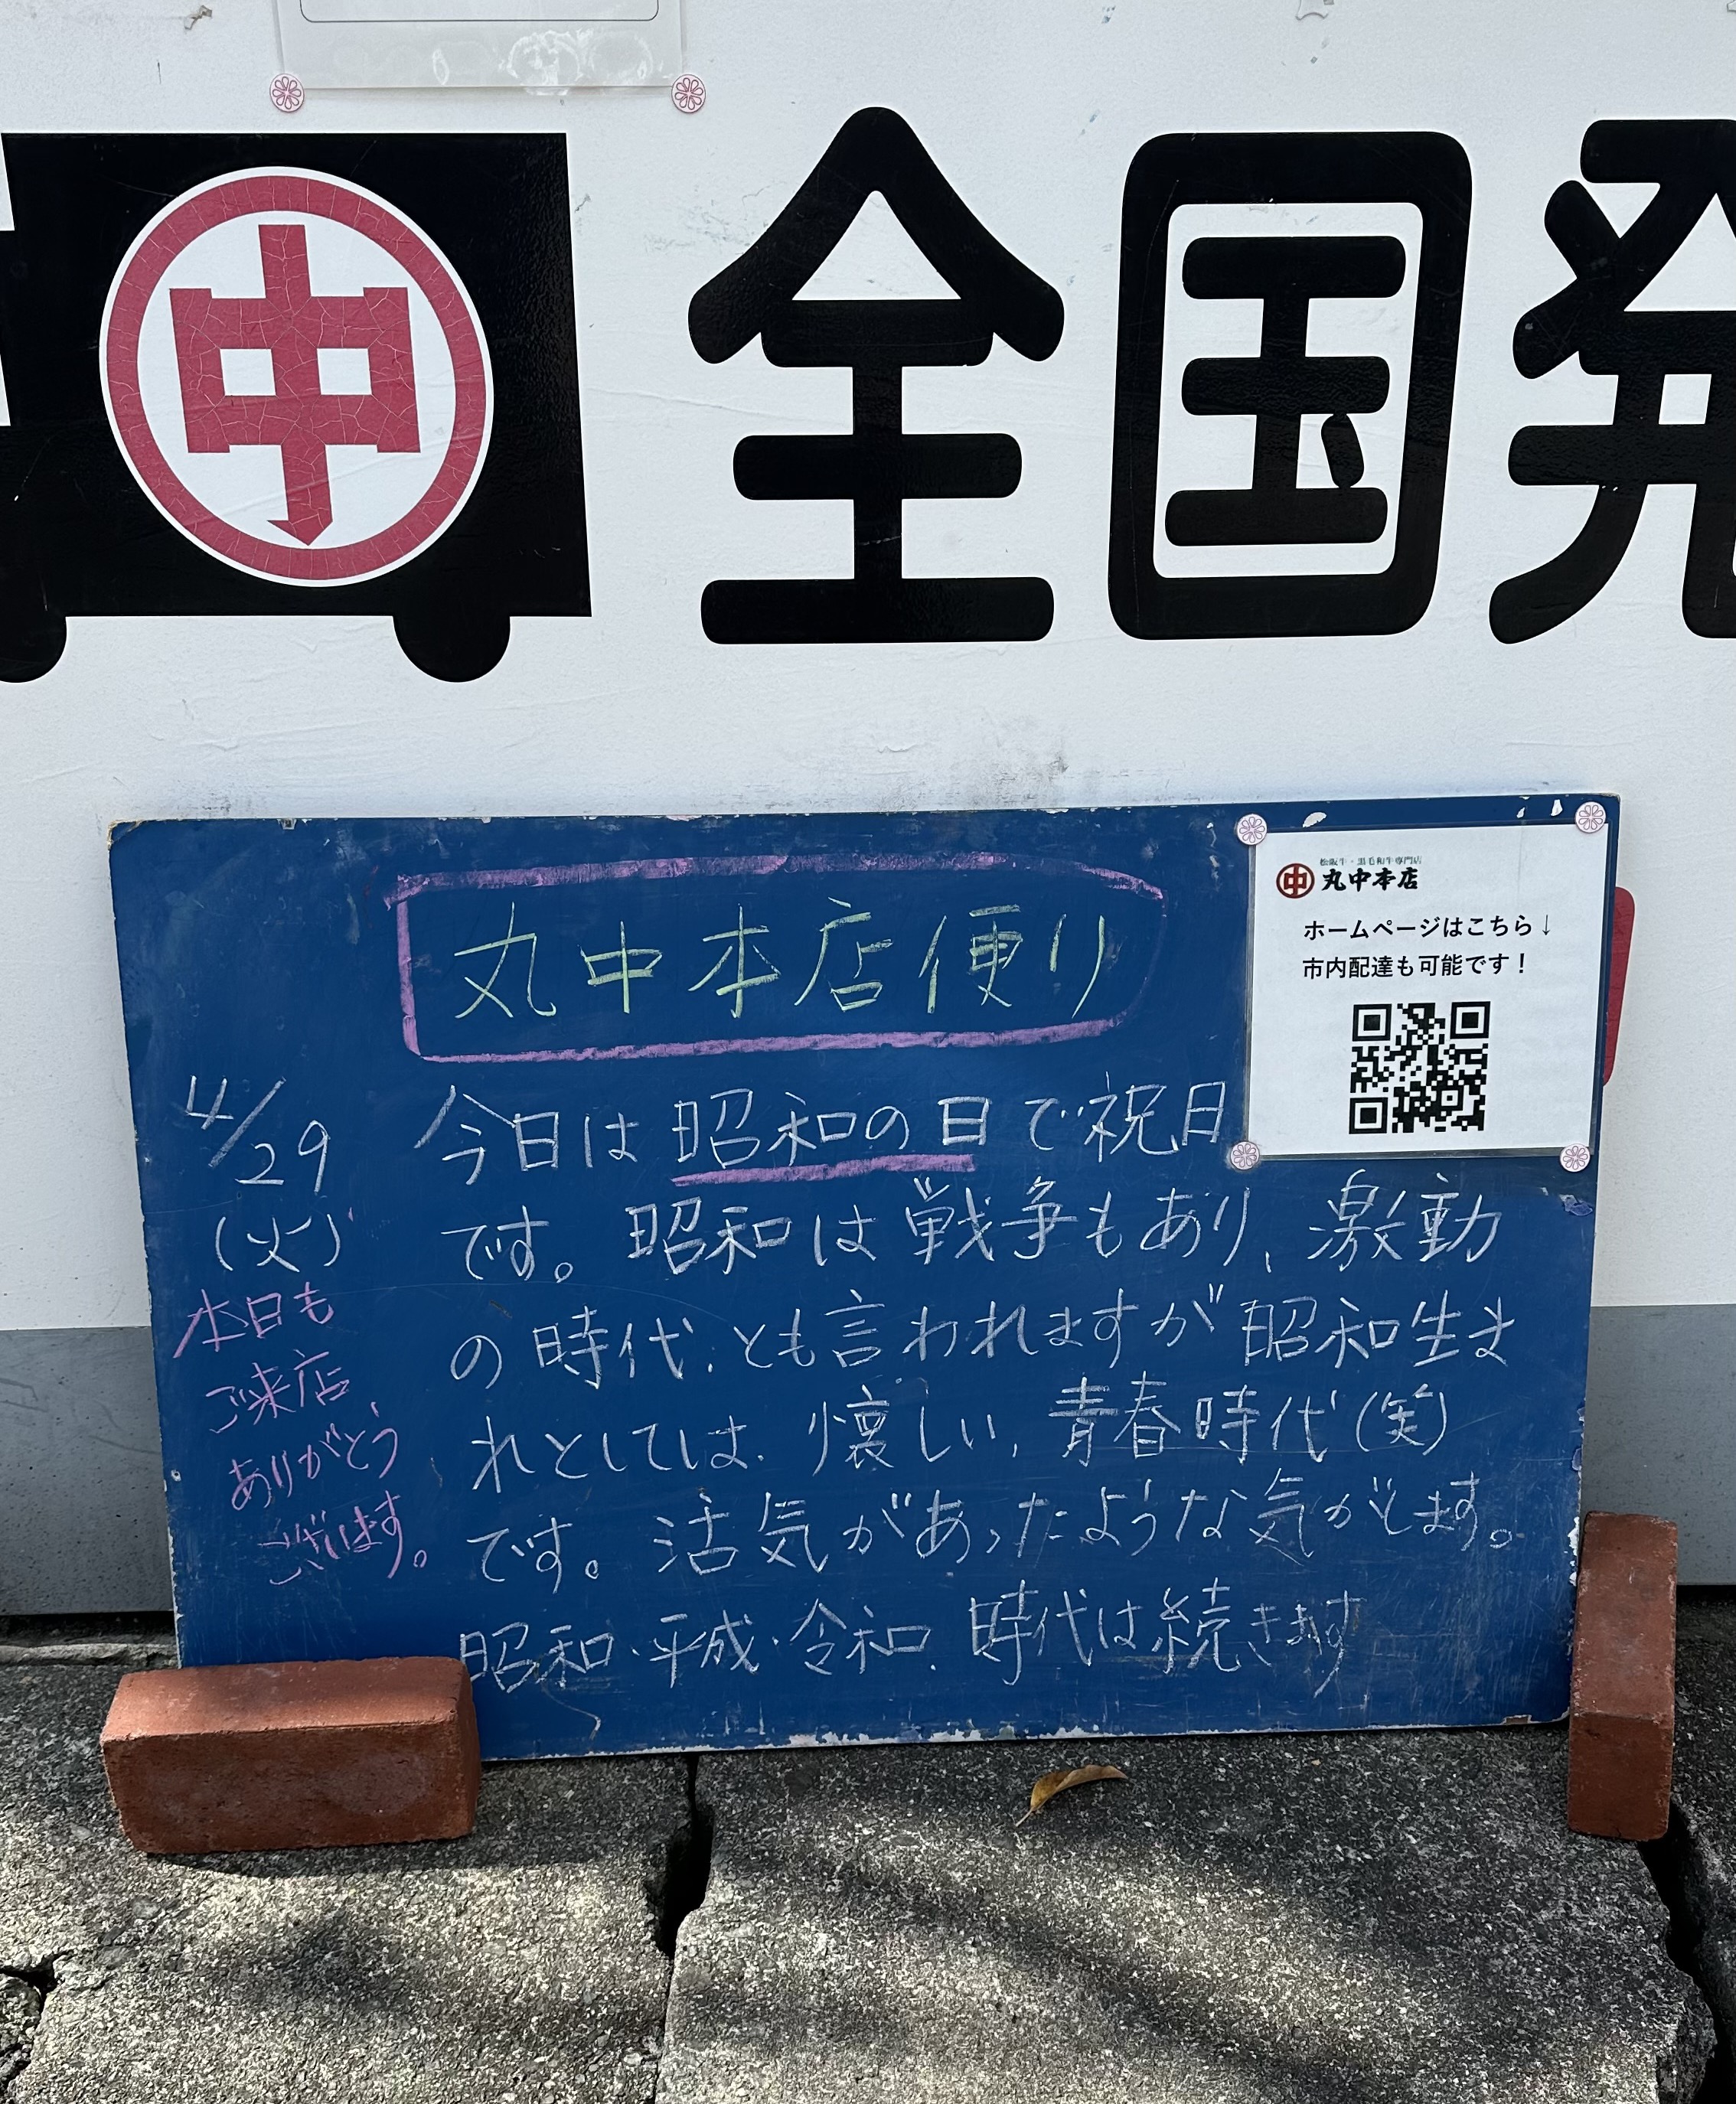 中
全国発
丸中本店便り
中
松阪牛・黒毛和牛専門店
丸中本店
ホームページはこちら↓
市内配達も可能です！
4/29
(火)
本日も
ご来店
ありがとう
ございます。
今日は昭和の日で祝日
です。昭和は戦争もあり、激動
の時代、とも言われますが昭和生ま
れとしては、懐しい、青春時代(笑)
です。活気があったような気がします。
昭和・平成・令和、時代は続きます